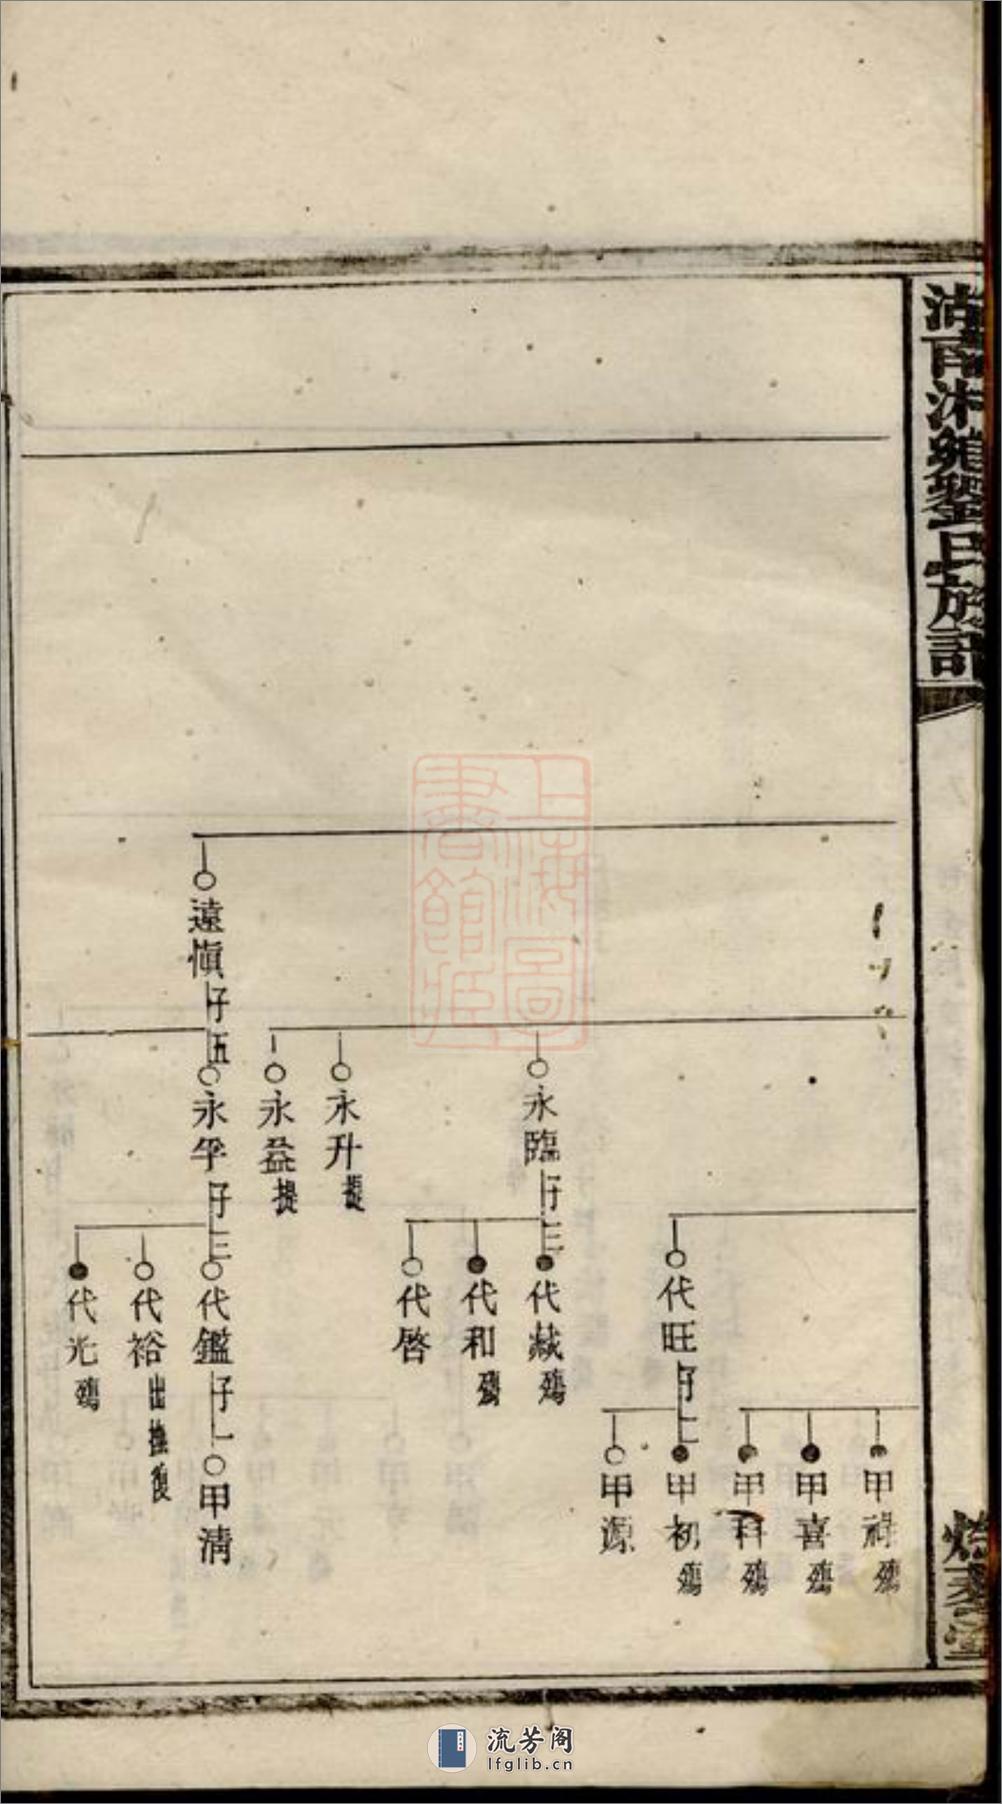 沩甯沐鄉劉氏族譜
甲祿殤
甲喜殤
甲科殤
代旺仔二
甲初殤
甲源
永臨仔三
代藏殤
代和殤
代啓
永升
永益
遠慎仔五
永孚仔三
代鑑仔一
甲清
代裕出撫復
代光殤
上海圖書館藏
流芳阁
lfglib.cn